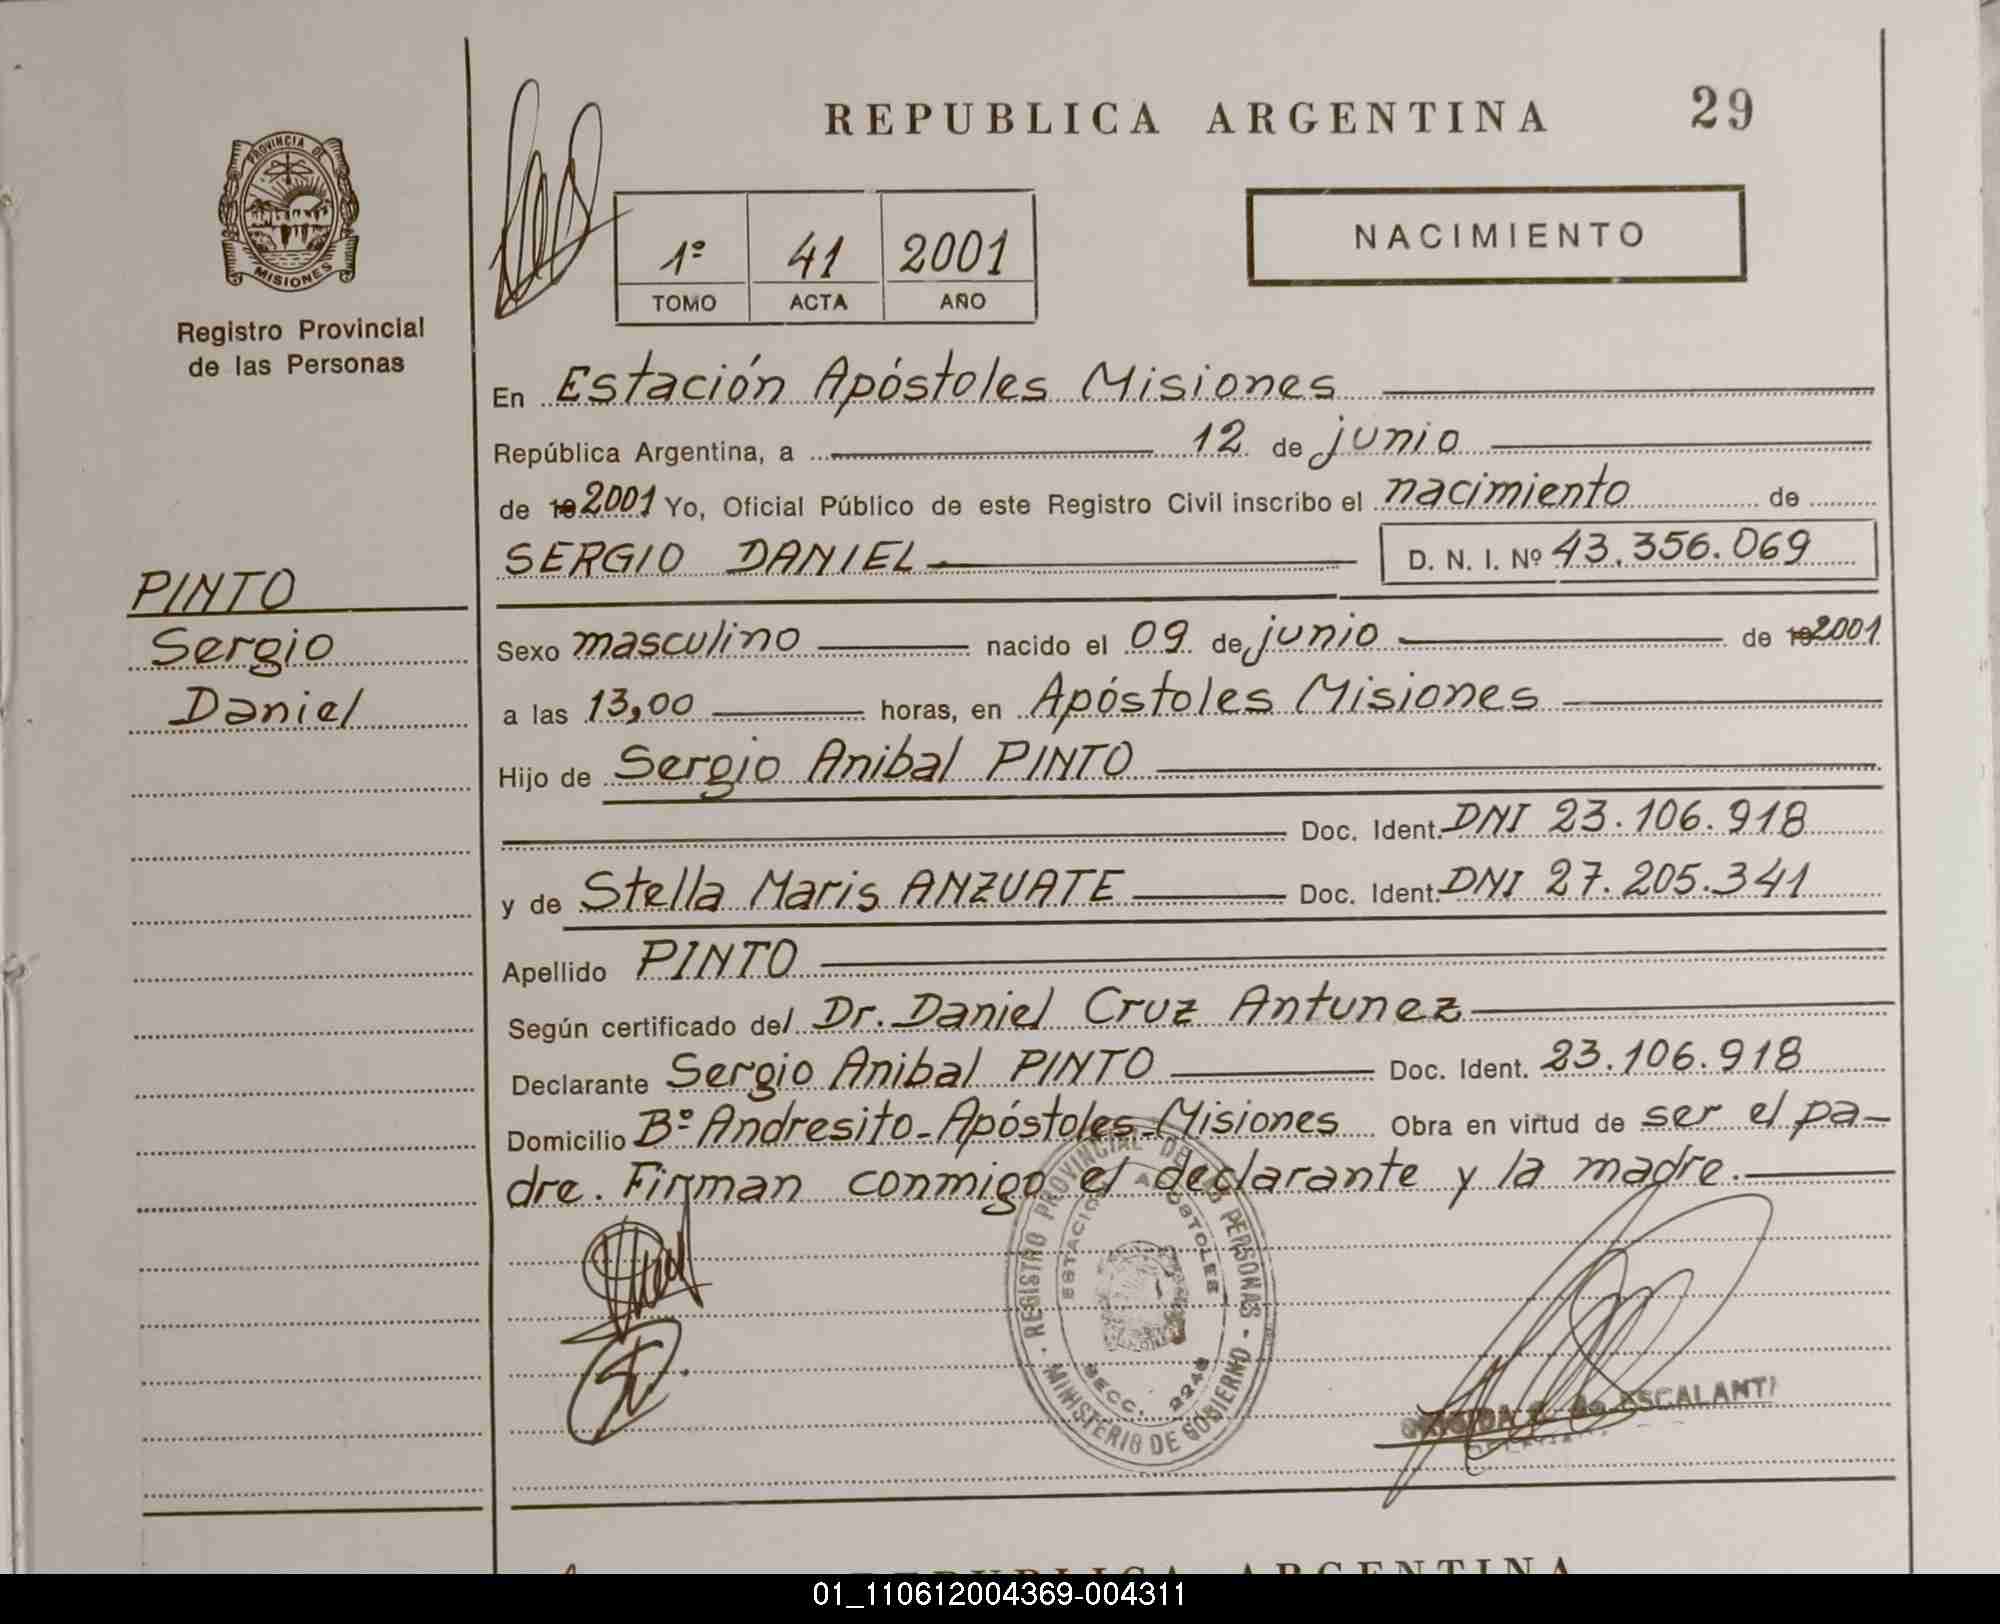 REPUBLICA ARGENTINA 29
PROVINCIA DE
MISIONES
Registro Provincial
de las Personas
1º 41 2001
TOMO ACTA AÑO
NACIMIENTO
En Estación Apóstoles Misiones
República Argentina, a 12 de junio
de 19 2001 Yo, Oficial Público de este Registro Civil inscribo el nacimiento de
SERGIO DANIEL D. N. I. Nº 43.356.069
PINTO
Sergio
Daniel
Sexo masculino nacido el 09 de junio de 19 2001
a las 13,00 horas, en Apóstoles Misiones
Hijo de Sergio Anibal PINTO
Doc. Ident. DNI 23.106.918
y de Stella Maris ANZUATE Doc. Ident. DNI 27.205.341
Apellido PINTO
Según certificado del Dr. Daniel Cruz Antunez
Declarante Sergio Anibal PINTO Doc. Ident. 23.106.918
Domicilio Bº Andresito-Apóstoles-Misiones Obra en virtud de ser el pa-
dre. Firman conmigo el declarante y la madre.
REGISTRO PROVINCIAL DE LAS PERSONAS
ESTACION APOSTOLES
SECC. 2246
MINISTERIO DE GOBIERNO
ESCALANT
REPUBLICA ARGENTINA
01_110612004369-004311